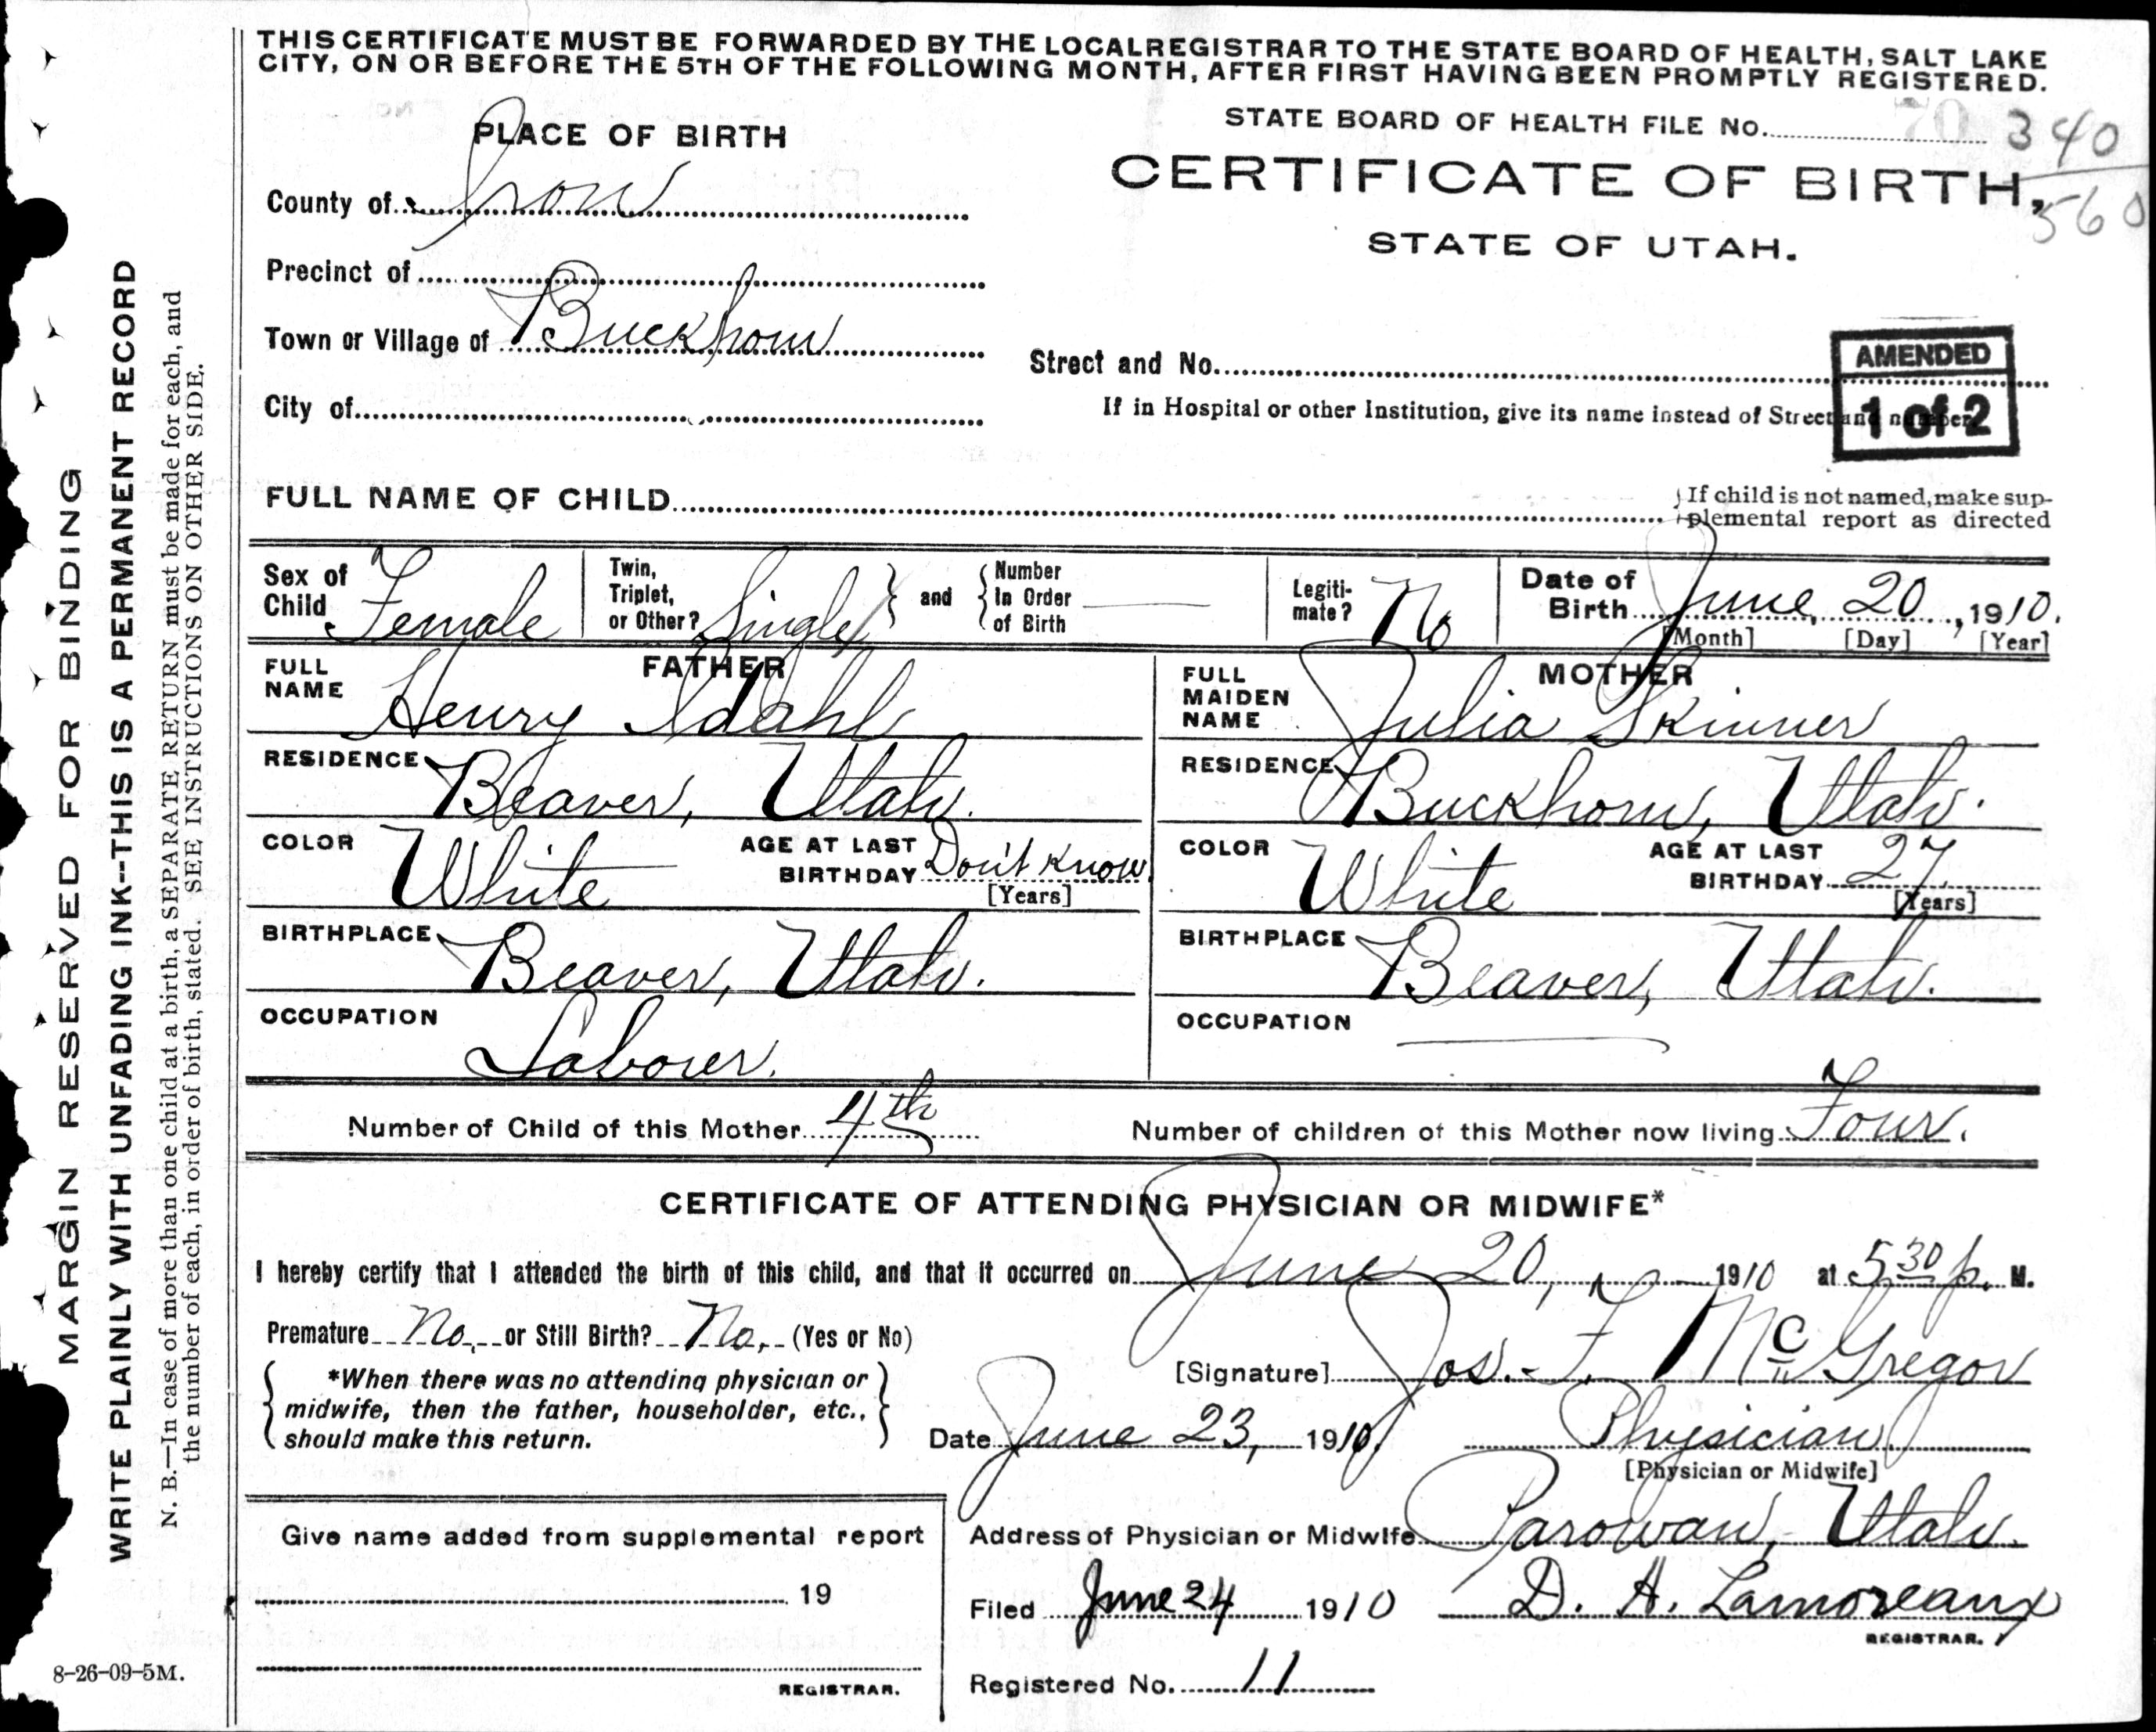 THIS CERTIFICATE MUST BE FORWARDED BY THE LOCAL REGISTRAR TO THE STATE BOARD OF HEALTH, SALT LAKE
CITY, ON OR BEFORE THE 5TH OF THE FOLLOWING MONTH, AFTER FIRST HAVING BEEN PROMPTLY REGISTERED.
STATE BOARD OF HEALTH FILE No. 340
560
PLACE OF BIRTH
CERTIFICATE OF BIRTH,
STATE OF UTAH.
County of Iron
Precinct of
Town or Village of Buckhorn
City of
Street and No.
If in Hospital or other Institution, give its name instead of Street and number
AMENDED
1 of 2
FULL NAME OF CHILD
If child is not named, make sup-
plemental report as directed
Sex of Child Female
Twin, Triplet, or Other? Single and Number In Order of Birth
Legiti-mate? No
Date of Birth June 20, 1910.
[Month] [Day] [Year]
FATHER
FULL NAME Henry Idahl
RESIDENCE Beaver, Utah.
COLOR White AGE AT LAST BIRTHDAY Don't Know.
[Years]
BIRTHPLACE Beaver, Utah.
OCCUPATION Laborer.
MOTHER
FULL MAIDEN NAME Julia Skinner
RESIDENCE Buckhorn, Utah.
COLOR White AGE AT LAST BIRTHDAY 27
[Years]
BIRTHPLACE Beaver, Utah.
OCCUPATION
Number of Child of this Mother 4th
Number of children of this Mother now living Four.
CERTIFICATE OF ATTENDING PHYSICIAN OR MIDWIFE*
I hereby certify that I attended the birth of this child, and that it occurred on June 20, 1910 at 5 30 p. M.
Premature No, or Still Birth? No, (Yes or No)
*When there was no attending physician or
midwife, then the father, householder, etc.,
should make this return.
[Signature] Jos. F. McGregor
Date June 23, 1910. Physician
[Physician or Midwife]
Address of Physician or Midwife Parowan, Utah.
Filed June 24 1910 D. A. Lamoreaux
REGISTRAR.
Registered No. 11
Give name added from supplemental report
19
REGISTRAR.
MARGIN RESERVED FOR BINDING
WRITE PLAINLY WITH UNFADING INK--THIS IS A PERMANENT RECORD
N. B.—In case of more than one child at a birth, a SEPARATE RETURN must be made for each, and
the number of each, in order of birth, stated. SEE INSTRUCTIONS ON OTHER SIDE.
8-26-09-5M.